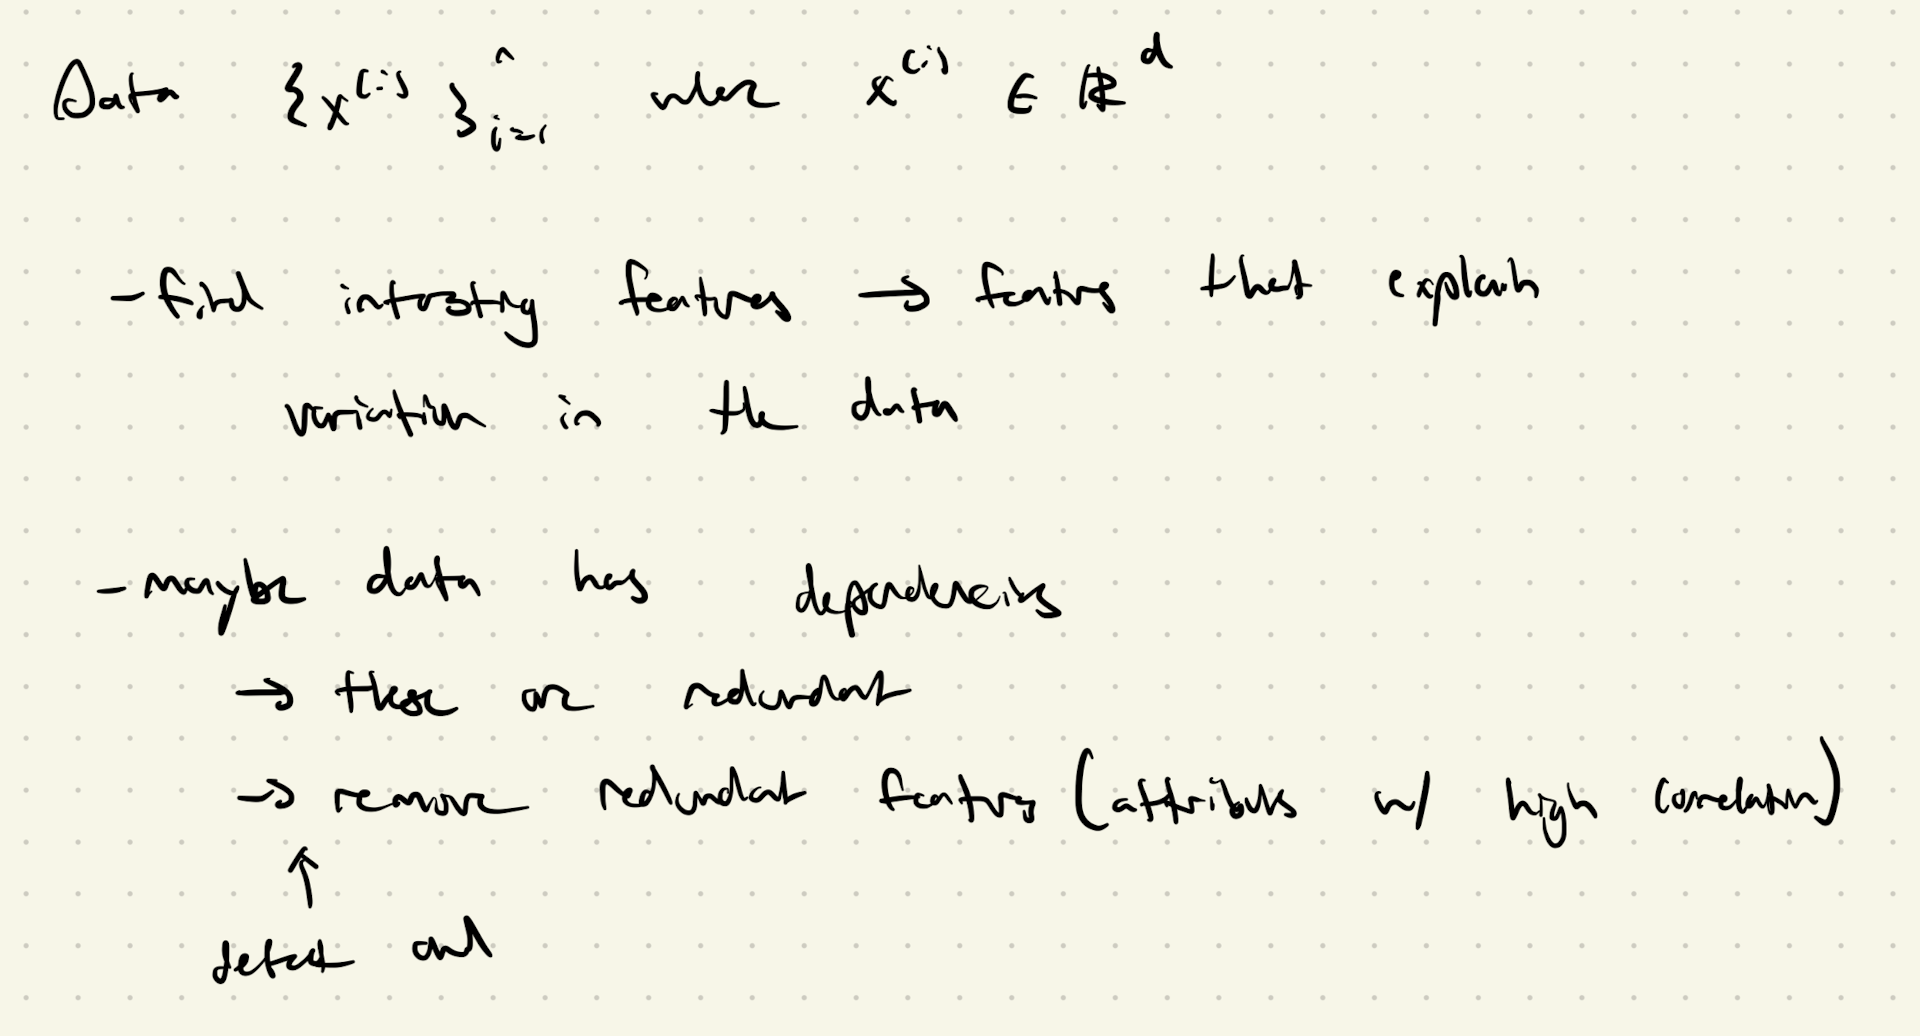 Data {x^(i)}^n_{i=1} where x^(i) ∈ ℝ^d
- find interesting features → features that explain
variation in the data
- maybe data has dependencies
→ these are redundant
→ remove redundant features (attributes w/ high correlation)
↑
detect and